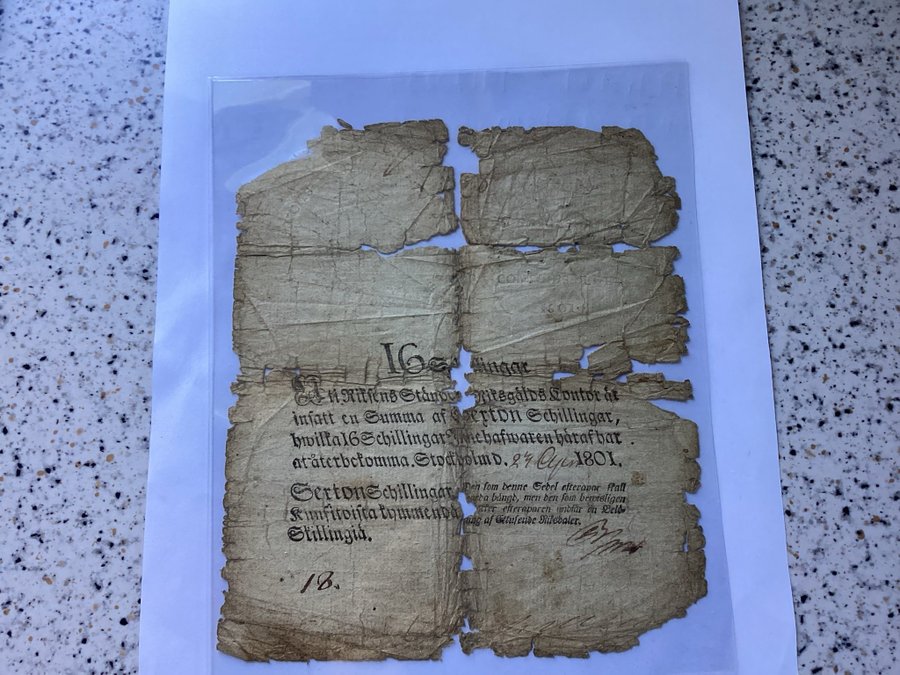 16 Schillingar
Uti Riksens Ständers Riksgälds Contor är
insatt en Summa af Sexton Schillingar,
hwilka 16 Schillingar Innehafwaren häraf har
at återbekomma. Stockholm d. 24 Apr. 1801.
Sexton Schillingar
Kuusitoista kymmendä
Skillingiä.
Den som denne Sedel efterapar skall
warda hängd, men den som bewisligen
efteraparen undfår en Belö-
ning af Ettusende Riksdaler.
18.